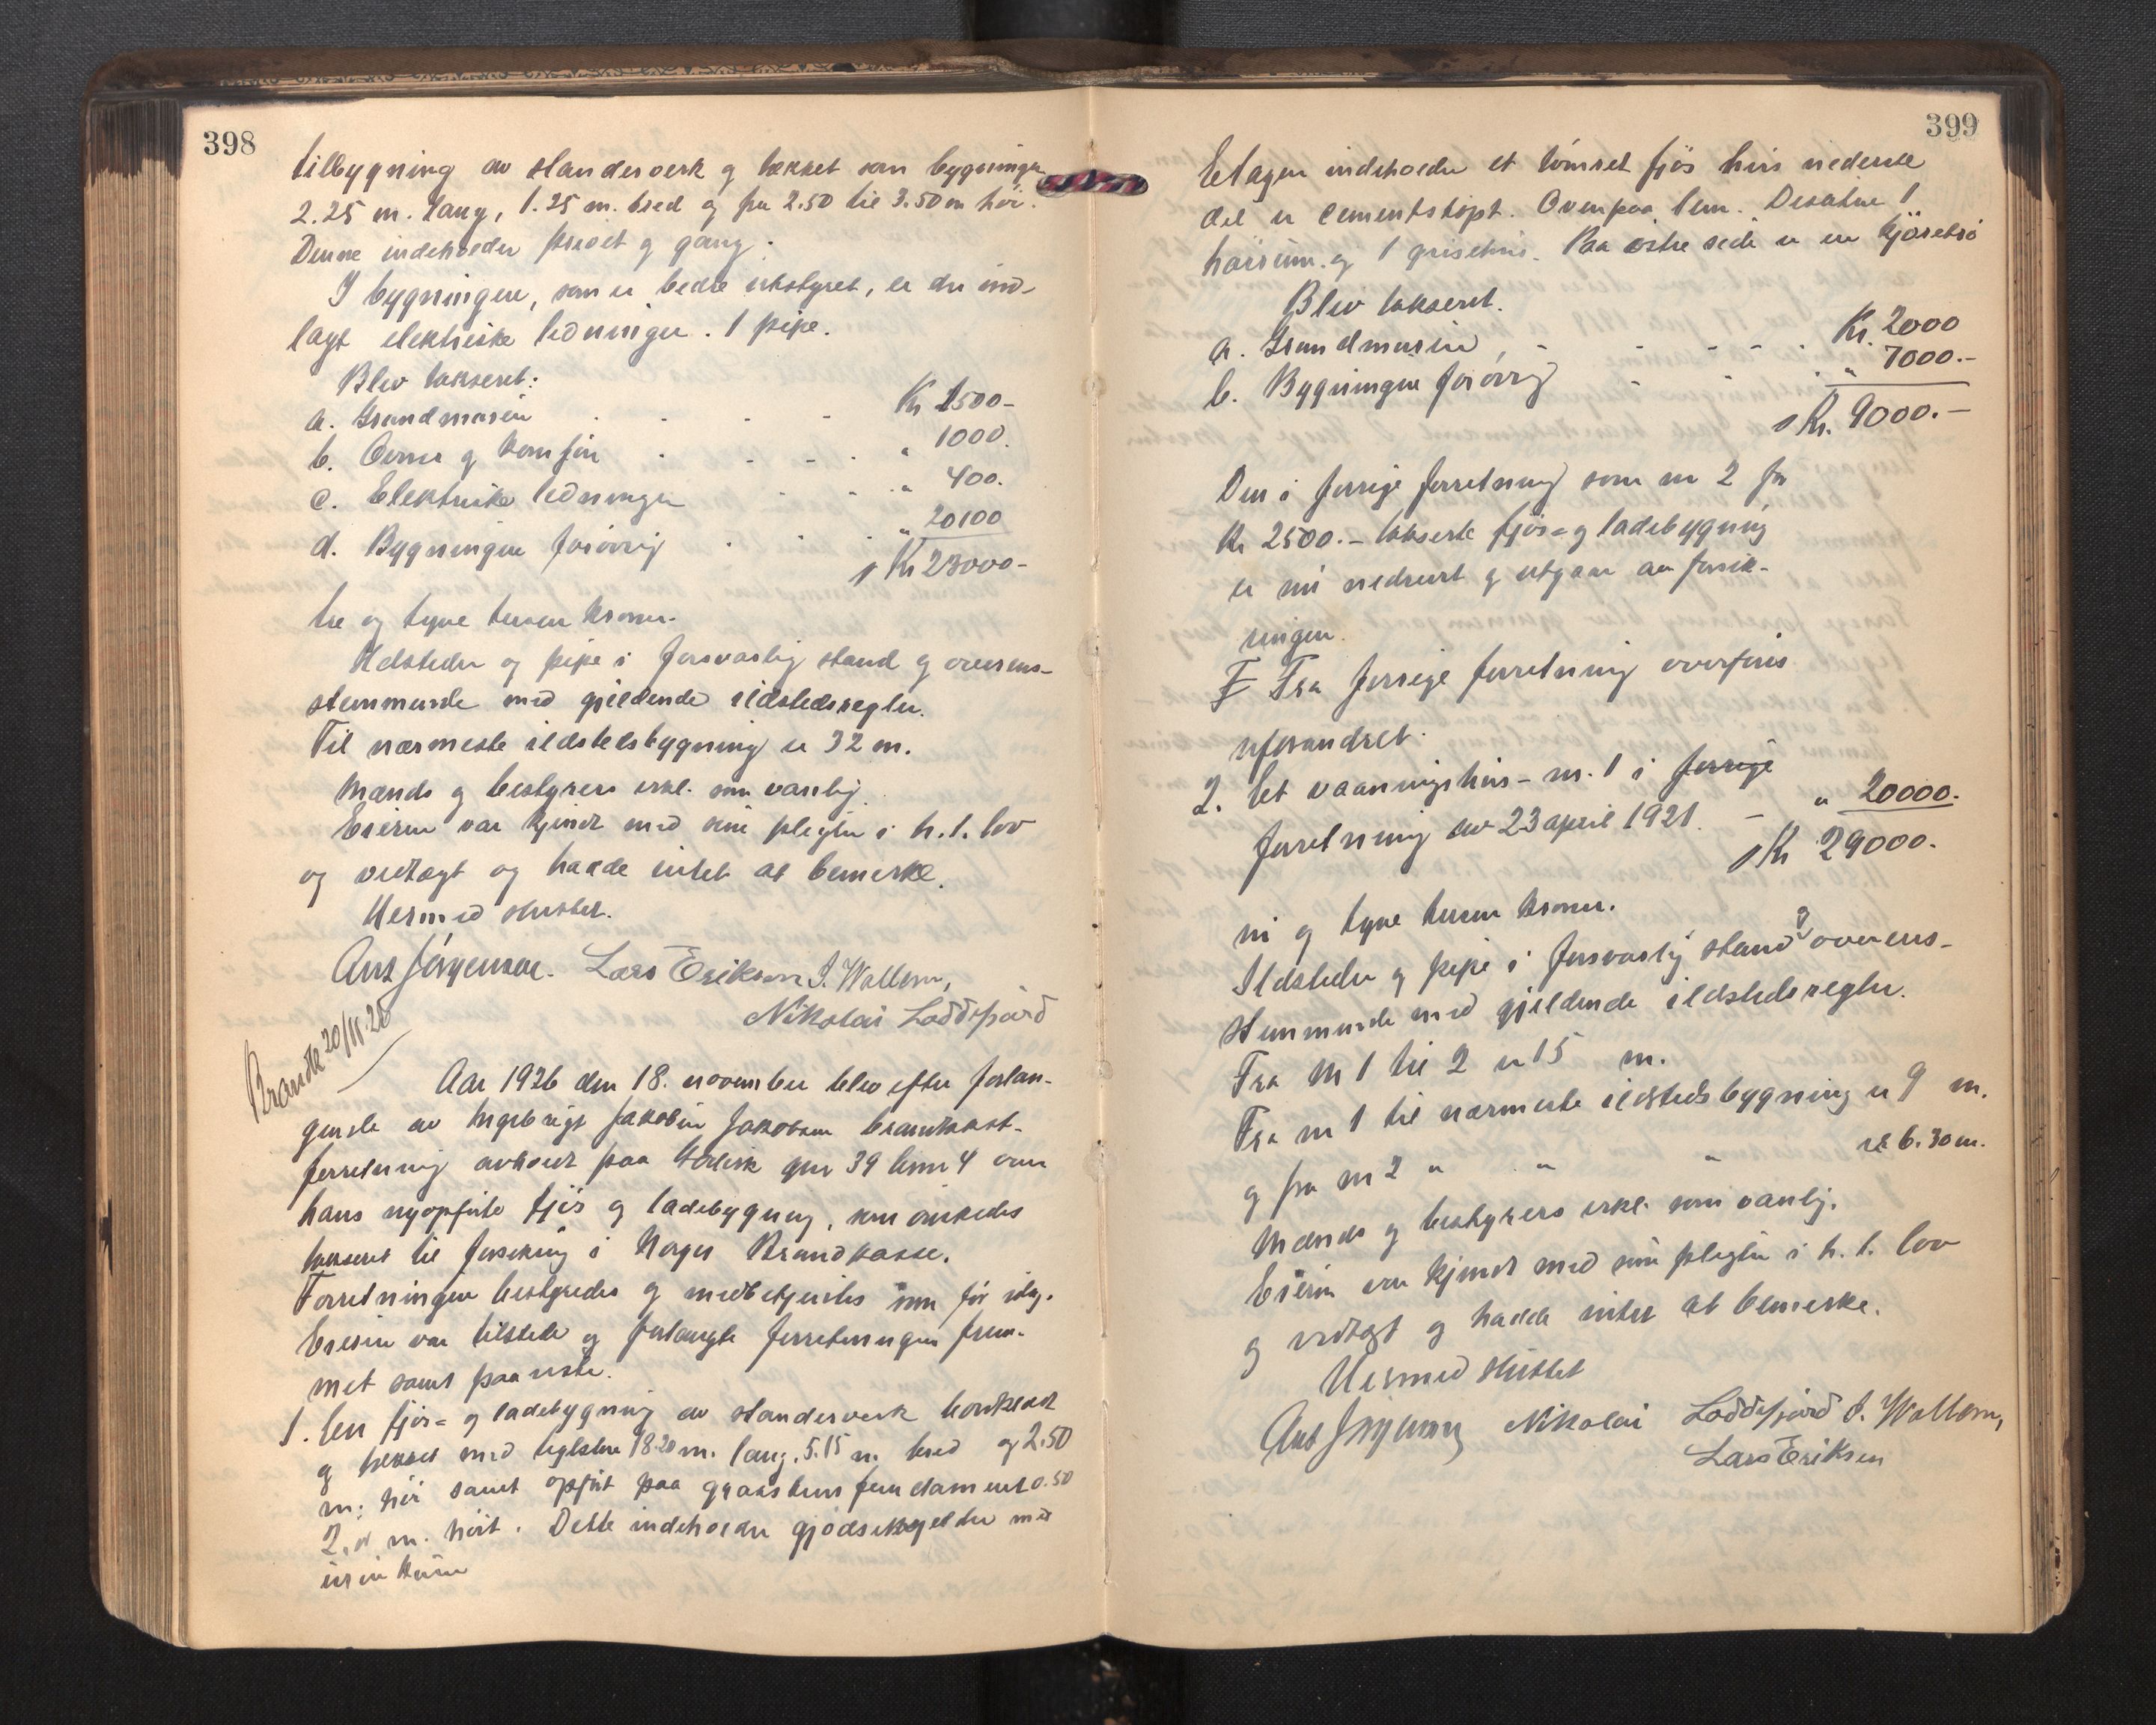 398
tilbygning av standerverk og tækket som bygningen
2.25 m. lang, 1.25 m. bred og fra 2.50 til 3.50 m høi.
Denne indeholder privet og gang.
I bygningen, som er bedre utstyret, er der ind-
lagt elektriske ledninger. 1 pipe.
Blev takseret:
a. Grundmuren . . - Kr 1500-
b. Ovner og komfur . - - . " 1000.
c. Elektriske ledninger - - . " 400.
d. Bygningen forøvrig . . . " 20100
s Kr 23000-
tre og tyve tusen kroner.
Ildsteder og pipe i forsvarlig stand og overens-
stemmende med gjeldende ildstedsregler.
Til nærmeste ildstedsbygning er 32 m.
Mænds og bestyrers erkl. som vanlig.
Eieren var kjendt med sine plegter i h. t. lov
og vedtægt og hadde intet at bemerke.
Hermed sluttet.
Ant Jørgensen. Lars Eriksen J. Wallem,
Nikolai Loddefjord
Brandtk 20/11.26
Aar 1926 den 18. november blev efter forlan-
gende av Ingebrigt Jakobin Jakobsen brandtakst-
forretning avholdt paa gnr 39 bnr 4 over
hans nyopførte fjøs og ladebygning, som ønskedes
takseret til forsikring i Norges Brandkasse.
Forretningen bestyredes og medbetjentes som før idag.
Eieren var tilstede og forlangte forretningen frem-
met samt paaviste.
1. En fjøs- og ladebygning av standerverk bordklædt
og tækket med teglsten 18.20 m. lang, 5.15 m. bred og 2.50
m. høi samt opført paa graastens fundament 0.50
2. m. høit. Dette indeholder gjødselkjelder med
urinkum
399
Etagen indeholder et tømret fjøs hvis nederste
del er cementstøpt. Ovenpaa lem. Desuten 1
høirum og 1 grisehus. Paa østre side er en kjørebro
Blev takseret.
a. Grundmuren, - - - - . Kr. 2000
b. Bygningen forøvrig - - . " 7000.-
s Kr. 9000.-
Den i forrige forretning som nr 2 for
Kr 2500.- takserte fjøs- og ladebygning
er nu nedrevet og utgaar av forsik-
ringen.
F Fra forrige forretning overføres
uforandret.
2. Et vaaningshus - nr. 1 i forrige
forretning av 23 april 1921. - " 20000.-
s Kr 29000.-
ni og tyve tusen kroner.
Ildsteder og pipe i forsvarlig stand og overens-
stemmende med gjeldende ildstedsregler.
Fra nr 1 til 2 er 15 m.
Fra nr 1 til nærmeste ildstedsbygning er 9 m.
og fra nr 2 " " " er 6.30 m.
Mænds og bestyrers erkl. som vanlig.
Eieren var kjendt med sine plegter i h. t. lov
og vedtægt og hadde intet at bemerke.
Hermed sluttet
Ant Jørgensen Nikolai Loddefjord J. Wallem,
Lars Eriksen